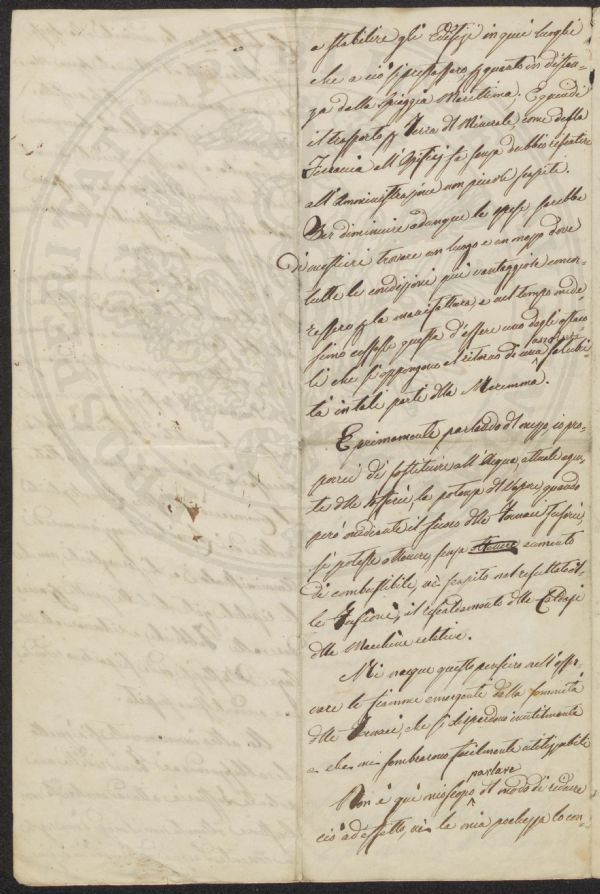 a stabilire gli Edifizj in quei luoghi
che a ciò si prestassero, quanto in distan-
za dalla spiaggia Marittima; E quindi
il trasporto Terra del Minerale, come dalla
all' fa senza dubbio risentire
all' Amministrazione non piccoli scapiti.
Per diminuire adunque le spese sarebbe
di mestieri trovare un luogo e un mezzo dove
tutte le condizioni più vantaggiose concor-
ressero la manifattura, e nel tempo mede-
simo cessasse questa d'essere uno degli ostaco-
li che si oppongono al ritorno di una salubri-
tà in tali parti della Maremma.
E primamente parlando del mezzo, io pro-
porrei di sostituire all' Acqua, attuale agen-
te delle la potenza del Vapore, quando
però mediante il fuoco delle Fornaci Fusorie,
si potesse ottenere, senza aumento
di combustibile, nè scapito nel resultato del-
le Fusioni, il riscaldamento delle Caldaje
delle Macchine relative.
Mi nacque questo pensiero nell' osser-
vare le fiamme emergenti dalla sommità
delle Fornaci, che si disperdono inutilmente
e che mi sembrarono facilmente utilizzabili
parlare
Non è quì mio scopo del modo di ridurre
ciò ad effetto, nè la mia pochezza lo con-